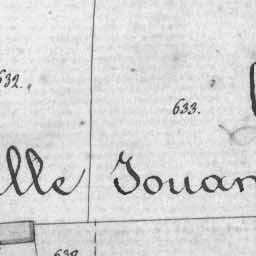 632.
633.
lle Jouan